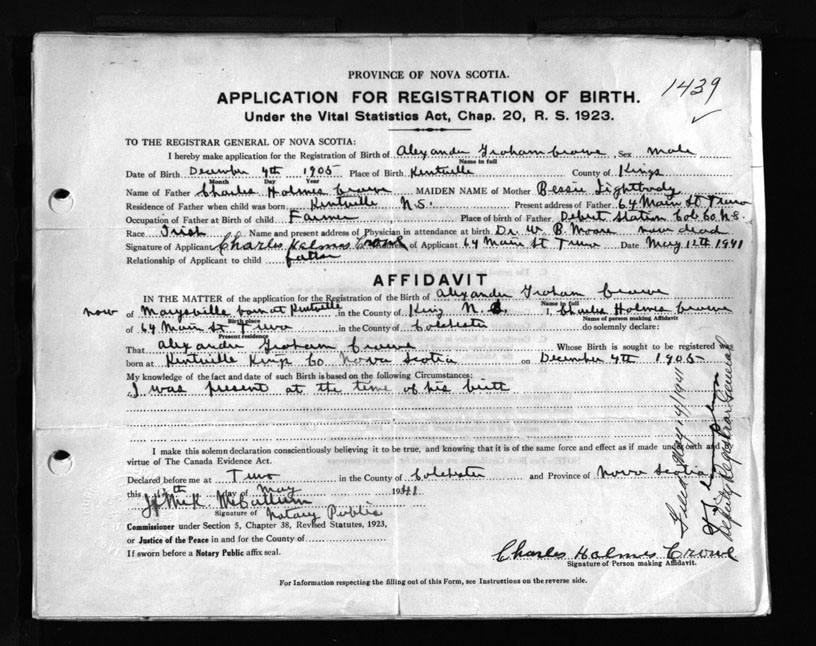 PROVINCE OF NOVA SCOTIA.
1439
APPLICATION FOR REGISTRATION OF BIRTH.
Under the Vital Statistics Act, Chap. 20, R. S. 1923.
TO THE REGISTRAR GENERAL OF NOVA SCOTIA:
I hereby make application for the Registration of Birth of Alexander Graham Crowe, Sex Male
Name in full
Date of Birth December 4th 1905 Place of Birth Kentville County of Kings
Month Day Year
Name of Father Charles Holmes Crowe MAIDEN NAME of Mother Bessie Lightbody
Residence of Father when child was born Kentville N.S. Present address of Father 64 Main St Truro
Occupation of Father at Birth of child Farmer Place of birth of Father Debert Station Col Co N.S.
Race Irish Name and present address of Physician in attendance at birth Dr. W. B. Moore now dead
Signature of Applicant Charles Holmes Crowe Address of Applicant 64 Main St Truro Date May 12th 1941
Relationship of Applicant to child father
AFFIDAVIT
IN THE MATTER of the application for the Registration of the Birth of Alexander Graham Crowe
Name in full
now of Marysville born at Kentville in the County of King N.S. I, Charles Holmes Crowe
Birth place Name of person making Affidavit
of 64 Main St Truro in the County of Colchester do solemnly declare:
Present residence
That Alexander Graham Crowe Whose Birth is sought to be registered was
born at Kentville Kings Co Nova Scotia on December 4th 1905
My knowledge of the fact and date of such Birth is based on the following Circumstances:
I was present at the time of his birth
I make this solemn declaration conscientiously believing it to be true, and knowing that it is of the same force and effect as if made under oath and
virtue of The Canada Evidence Act.
Declared before me at Truro in the County of Colchester and Province of Nova Scotia
this day of May 1941
McCallum
Signature of Notary Public
Commissioner under Section 5, Chapter 38, Revised Statutes, 1923,
or Justice of the Peace in and for the County of
If sworn before a Notary Public affix seal.
Charles Holmes Crowe
Signature of Person making Affidavit.
For Information respecting the filling out of this Form, see Instructions on the reverse side.
Filed May 14/1941
Deputy Registrar General